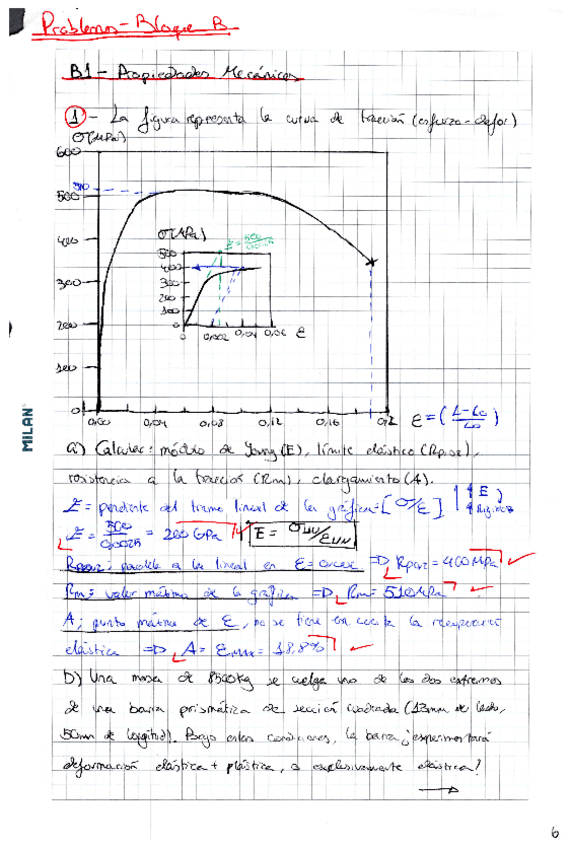 Problemas - Bloque B
B1 - Propiedades Mecánicas
1 - La figura representa la curva de tracción (esfuerzo-defor)
σ(MPa)
600
500
400
300
200
100
0
510
σ(MPa)
500
400
300
200
100
0
0 0,002 0,04 0,06 ε
0,00 0,04 0,08 0,12 0,16 0,2
ε = (L-L0/L0)
MILAN
a) Calcular: módulo de Young (E), límite elástico (Rp0,2),
resistencia a la tracción (Rm), alargamiento (A).
E = pendiente del tramo lineal de la gráfica = [σ/E] ↑↑E
↑Rigidez
E = 500/0,0025 = 200 GPa E = σ/ε
Rp0,2: paralela a la lineal en ε=0,002 ⇒ Rp0,2 = 400 MPa
Rm: valor máximo de la gráfica ⇒ Rm = 510 MPa
A: punto máximo de ε, no se tiene en cuenta la recuperación
elástica ⇒ A = εmax = 18,8%
b) Una masa de 8500kg se cuelga uno de los dos extremos
de una barra prismática de sección cuadrada (13mm de lado,
50mm de longitud). Bajo estas condiciones, la barra ¿experimentará
deformación elástica + plástica, o exclusivamente elástica?
6